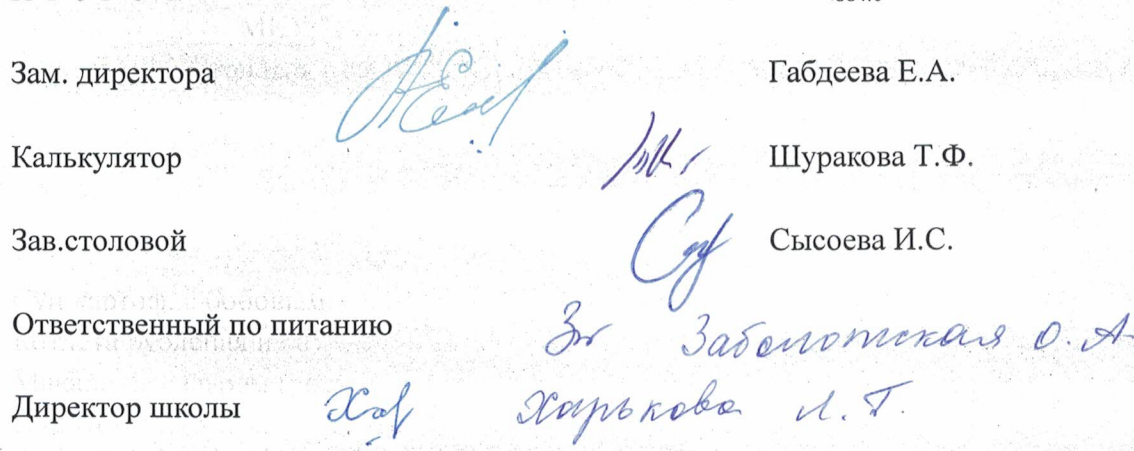 Зам. директора Габдеева Е.А.
Калькулятор Шуракова Т.Ф.
Зав.столовой Сысоева И.С.
Ответственный по питанию Заболотская О.А.
Директор школы Харькова Л.Т.